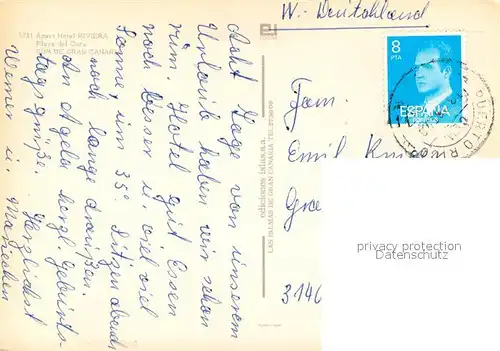 5731 Apart Hotel RIVIERA
Playa del Cura
SUR DE GRAN CANARIA
Acht Tage von unserem
Urlaub haben wir schon
rum. Hotel gut Essen
noch besser u. viel viel
Sonne, um 35°. Sitzen abends
noch lange draußen.
An Angela herzl. Geburts-
tagsgrüße. Herzlichst
Werner u.
ediciones islas, s.a.
LAS PALMAS DE GRAN CANARIA
W.-Deutschland
8
PTA
ESPAÑA
CORREOS
PUERTO R
Fam.
Emil
3146
privacy protection
Datenschutz